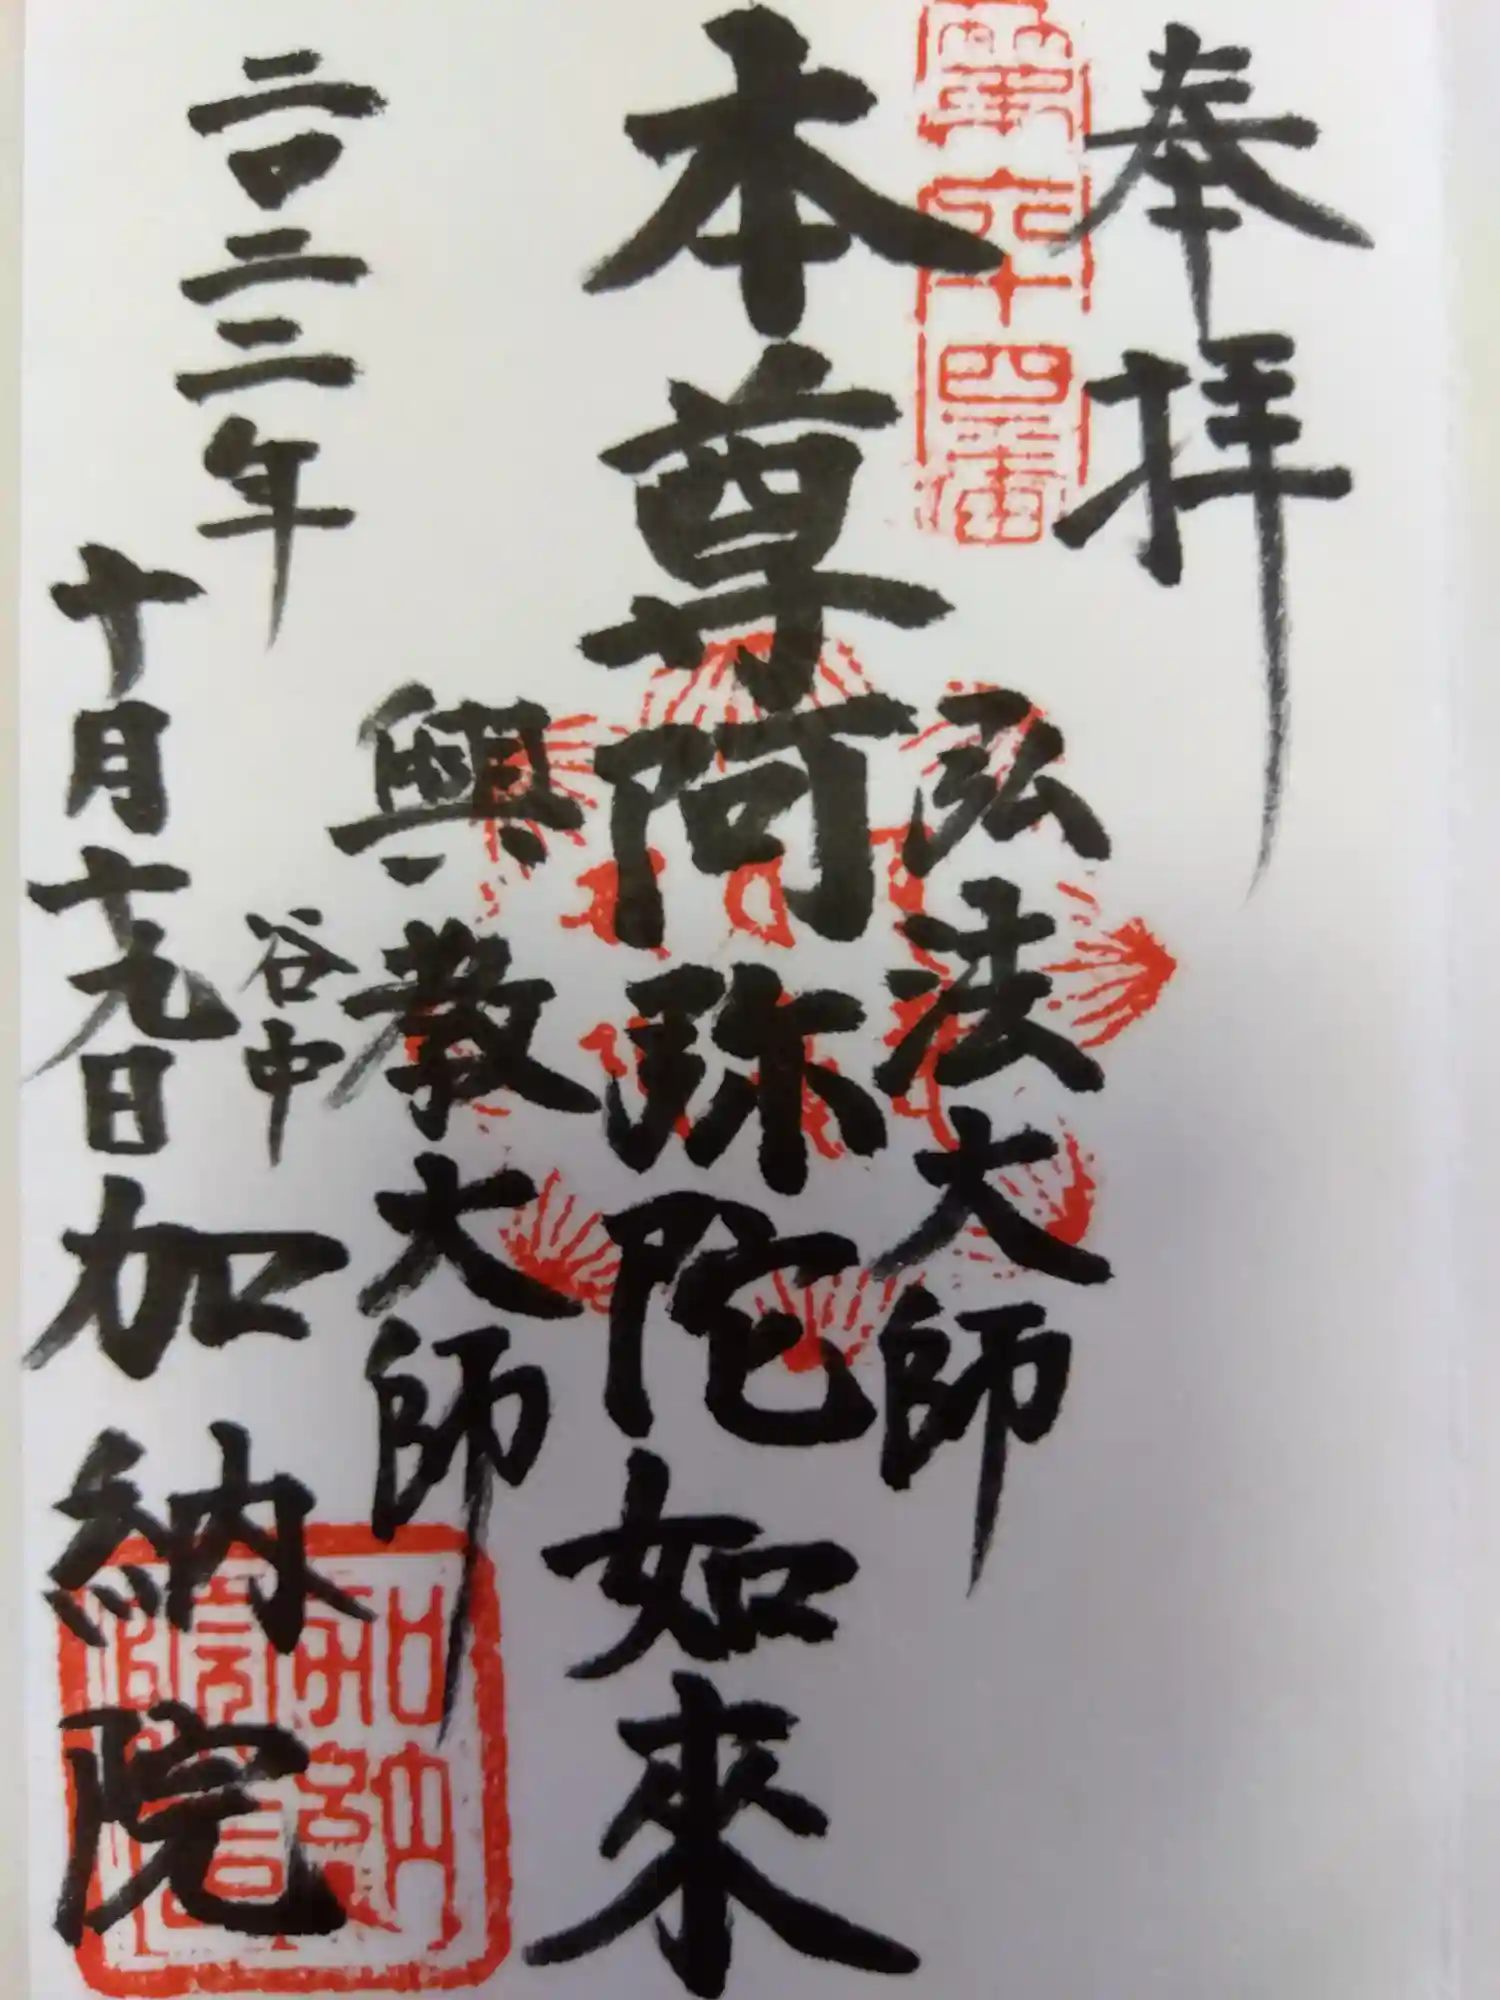 奉拝
霊六十四番
弘法大師
本尊阿弥陀如來
興教大師
谷中
加納院
二〇二二年
十月十九日